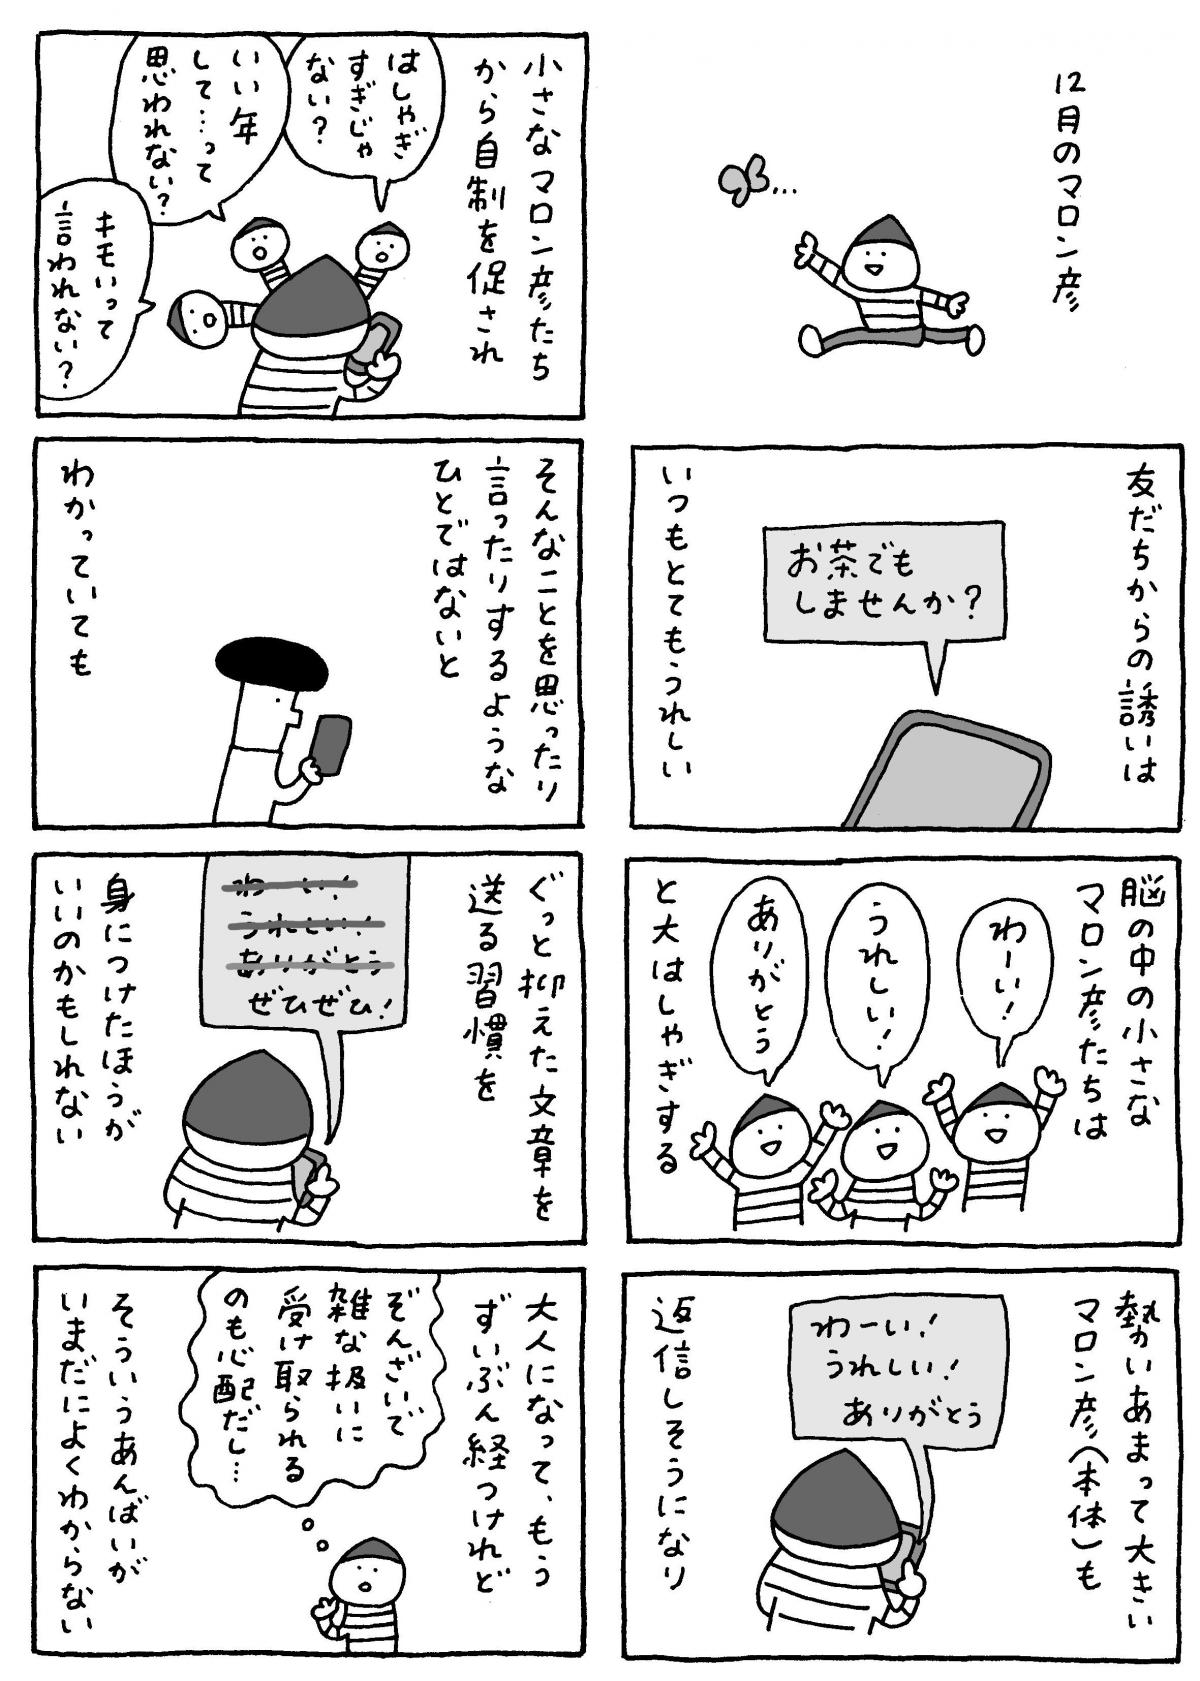 12月のマロン彦
友だちからの誘いは
お茶でも
しませんか?
いつもとてもうれしい
脳の中の小さな
マロン彦たちは
わーい!
うれしい!
ありがとう
と大はしゃぎする
勢いあまって大きい
マロン彦(本体)も
わーい!
うれしい!
ありがとう
返信しそうになり
小さなマロン彦たち
から自制を促され
はしゃぎ
すぎじゃ
ない?
いい年
して…って
思われない?
キモいって
言われない?
そんなことを思ったり
言ったりするような
ひとではないと
わかっていても
ぐっと抑えた文章を
送る習慣を
わーい!
うれしい!
ありがとう
ぜひぜひ!
身につけたほうが
いいのかもしれない
大人になって、もう
ずいぶん経つけれど
ぞんざいで
雑な扱いに
受け取られる
のも心配だし…
そういうあんばいが
いまだによくわからない